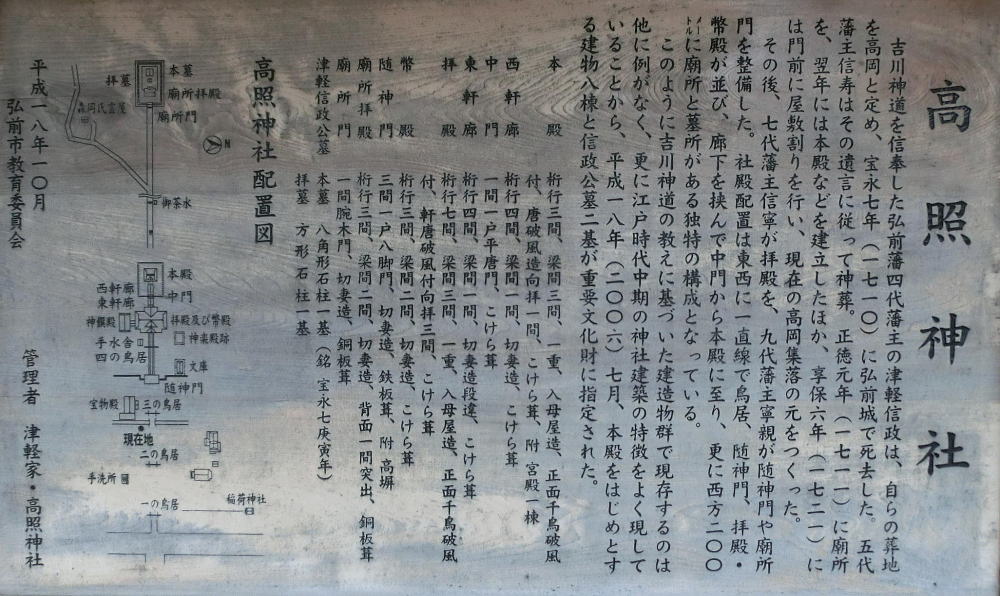 高照神社
吉川神道を信奉した弘前藩四代藩主の津軽信政は、自らの葬地
を高岡と定め、宝永七年（一七一〇）に弘前城で死去した。五代
藩主信寿はその遺言に従って神葬。正徳元年（一七一一）に廟所
を、翌年には本殿などを建立したほか、享保六年（一七二一）に
は門前に屋敷割りを行い、現在の高岡集落の元をつくった。
その後、七代藩主信寧が拝殿を、九代藩主寧親が随神門や廟所
門を整備した。社殿配置は東西に一直線で鳥居、随神門、拝殿・
幣殿が並び、廊下を挟んで中門から本殿に至り、更に西方二〇〇
メートルに廟所と墓所がある独特の構成となっている。
このように吉川神道の教えに基づいた建造物群で現存するのは
他に例がなく、更に江戸時代中期の神社建築の特徴をよく現して
いることから、平成一八年（二〇〇六）七月、本殿をはじめとす
る建物八棟と信政公墓二基が重要文化財に指定された。
本殿 桁行三間、梁間三間、一重、入母屋造、正面千鳥破風
付、唐破風造向拝一間、こけら葺、附 宮殿一棟
西軒廊 桁行四間、梁間一間、切妻造、こけら葺
中門 一間一戸平唐門、こけら葺
東軒廊 桁行四間、梁間一間、切妻造段違、こけら葺
拝殿 桁行七間、梁間三間、一重、入母屋造、正面千鳥破風
付、軒唐破風付向拝三間、こけら葺
幣殿 桁行三間、梁間二間、切妻造、こけら葺
随神門 三間一戸八脚門、切妻造、鉄板葺、附 高塀
廟所拝殿 桁行三間、梁間二間、切妻造、背面一間突出、銅板葺
廟所門 一間腕木門、切妻造、銅板葺
津軽信政公墓 本墓 八角形石柱一基（銘 宝永七庚寅年）
拝墓 方形石柱一基
高照神社配置図
本墓
拝墓
廟所拝殿
廟所門
N
御茶水
本殿
中門
西軒廊
東軒廊
拝殿及び幣殿
神饌殿
神楽殿跡
手水舎
四の鳥居
文庫
随神門
宝物殿
三の鳥居
現在地
二の鳥居
手洗所
一の鳥居
稲荷神社
平成一八年一〇月
弘前市教育委員会
管理者 津軽家・高照神社